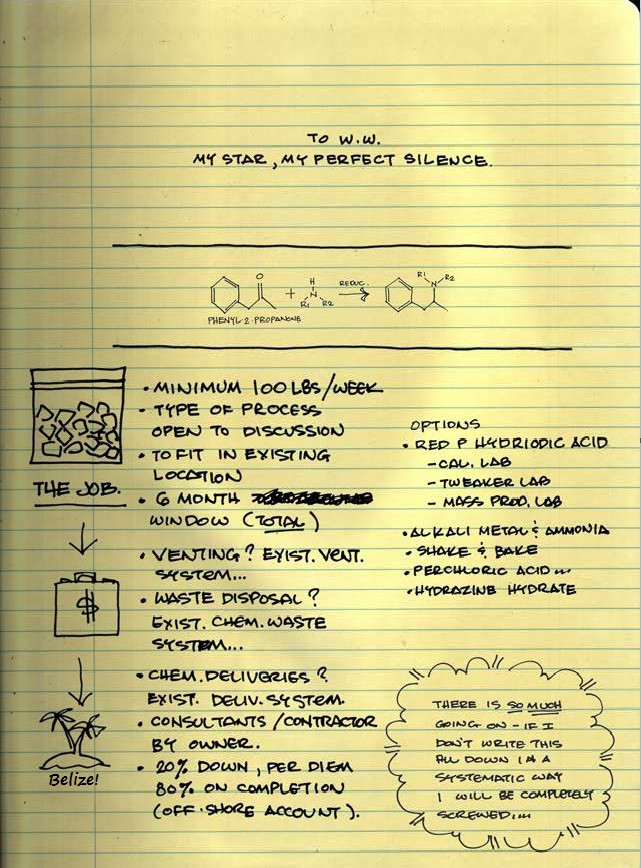 TO W.W.
MY STAR, MY PERFECT SILENCE.
O
H
N
R1 R2
+
REDUC.
R1 R2
N
PHENYL-2-PROPANONE
• MINIMUM 100 LBS/WEEK
• TYPE OF PROCESS
OPEN TO DISCUSSION
• TO FIT IN EXISTING
LOCATION
• 6 MONTH
WINDOW (TOTAL)
THE JOB.
• VENTING? EXIST. VENT.
SYSTEM...
• WASTE DISPOSAL?
EXIST. CHEM. WASTE
SYSTEM...
$
• CHEM. DELIVERIES?
EXIST. DELIV. SYSTEM.
• CONSULTANTS/CONTRACTOR
BY OWNER.
• 20% DOWN, PER DIEM
80% ON COMPLETION
(OFF-SHORE ACCOUNT).
Belize!
OPTIONS
• RED P HYDRIODIC ACID
- CAL. LAB
- TWEAKER LAB
- MASS PROD. LAB
• ALKALI METAL & AMMONIA
• SHAKE & BAKE
• PERCHLORIC ACID...
• HYDRAZINE HYDRATE
THERE IS SO MUCH
GOING ON - IF I
DON'T WRITE THIS
ALL DOWN IN A
SYSTEMATIC WAY
I WILL BE COMPLETELY
SCREWED....